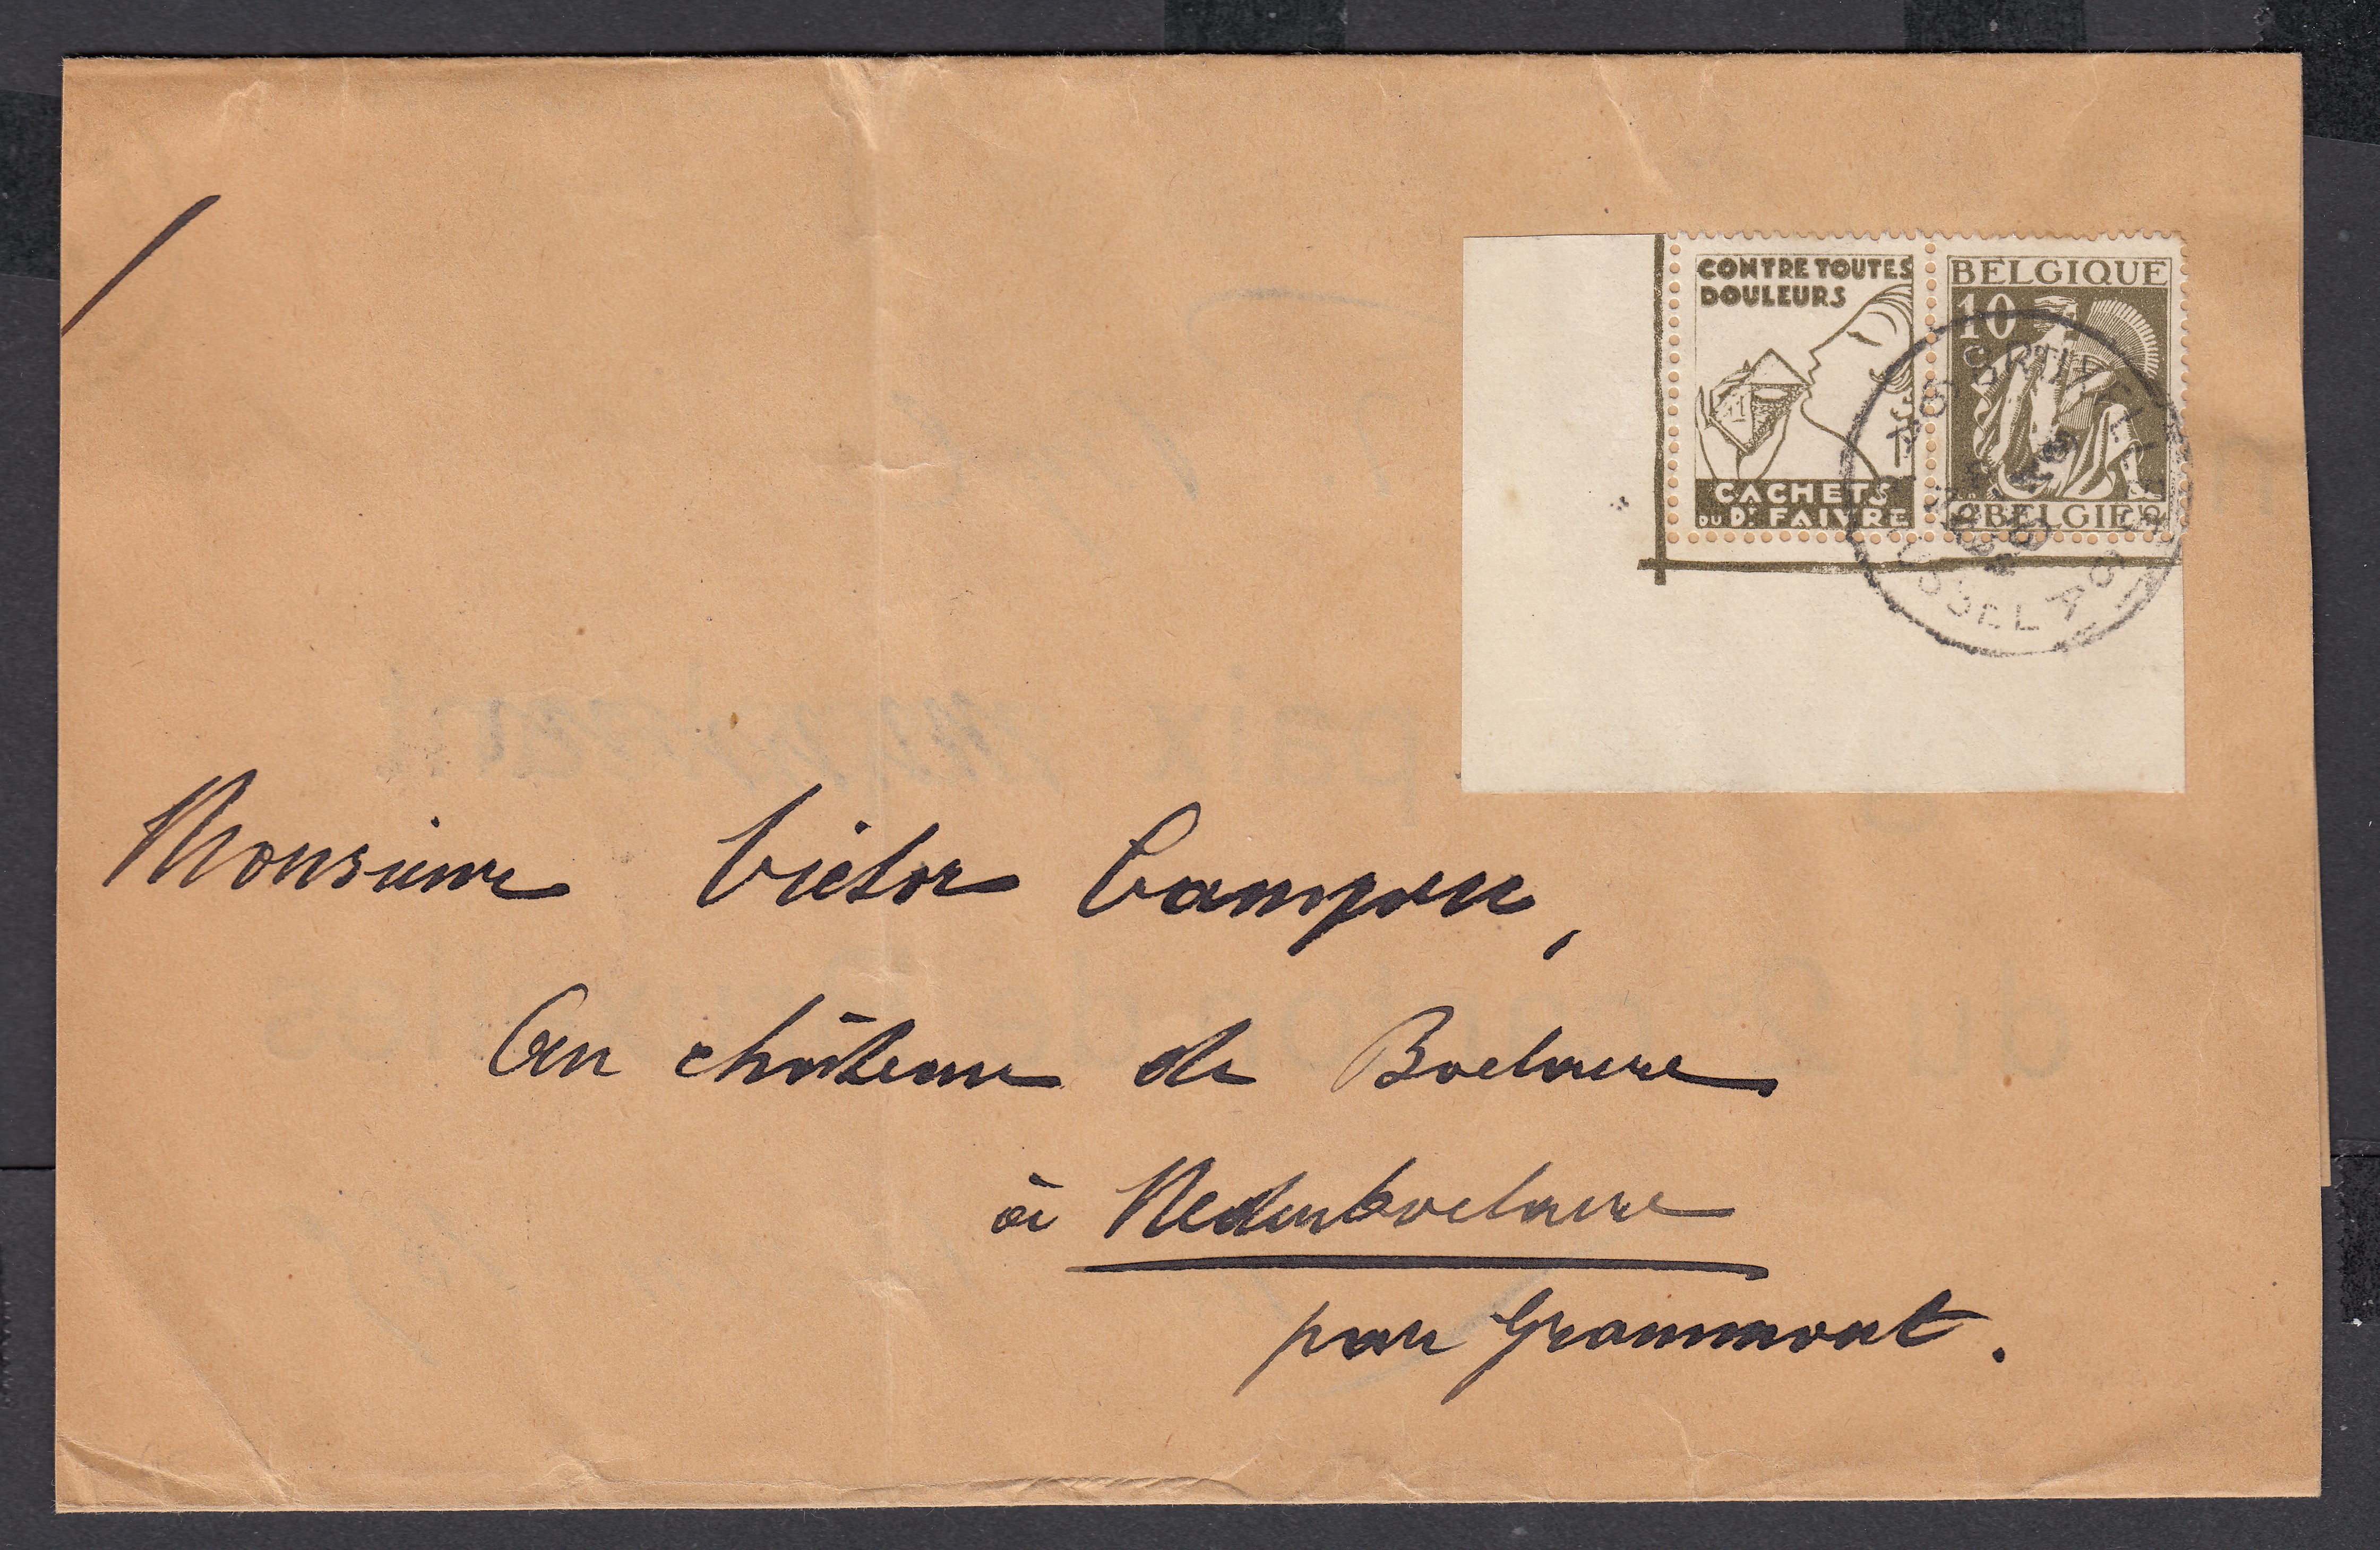 CONTRE TOUTES
DOULEURS
CACHETS
DU Dr. FAIVRE
BELGIQUE
10 c
BELGIË
BRUXELLES
Monsieur Victor
Au château de Boelaere
à Nederboelaere
par Grammont.